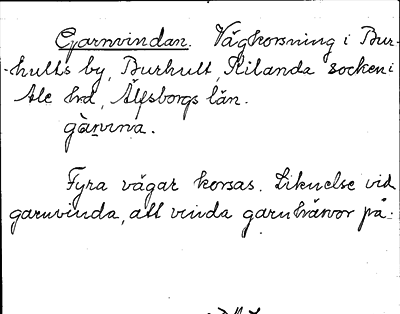 Garnvindan. Vägkorsning i Bur-
-hults by, Burhult, Kilanda socken i
Ale hrd, Älfsborgs län.
gàṇvina.
Fyra vägar korsas. Liknelse vid
garnvinda, att vinda garnhärvor på.